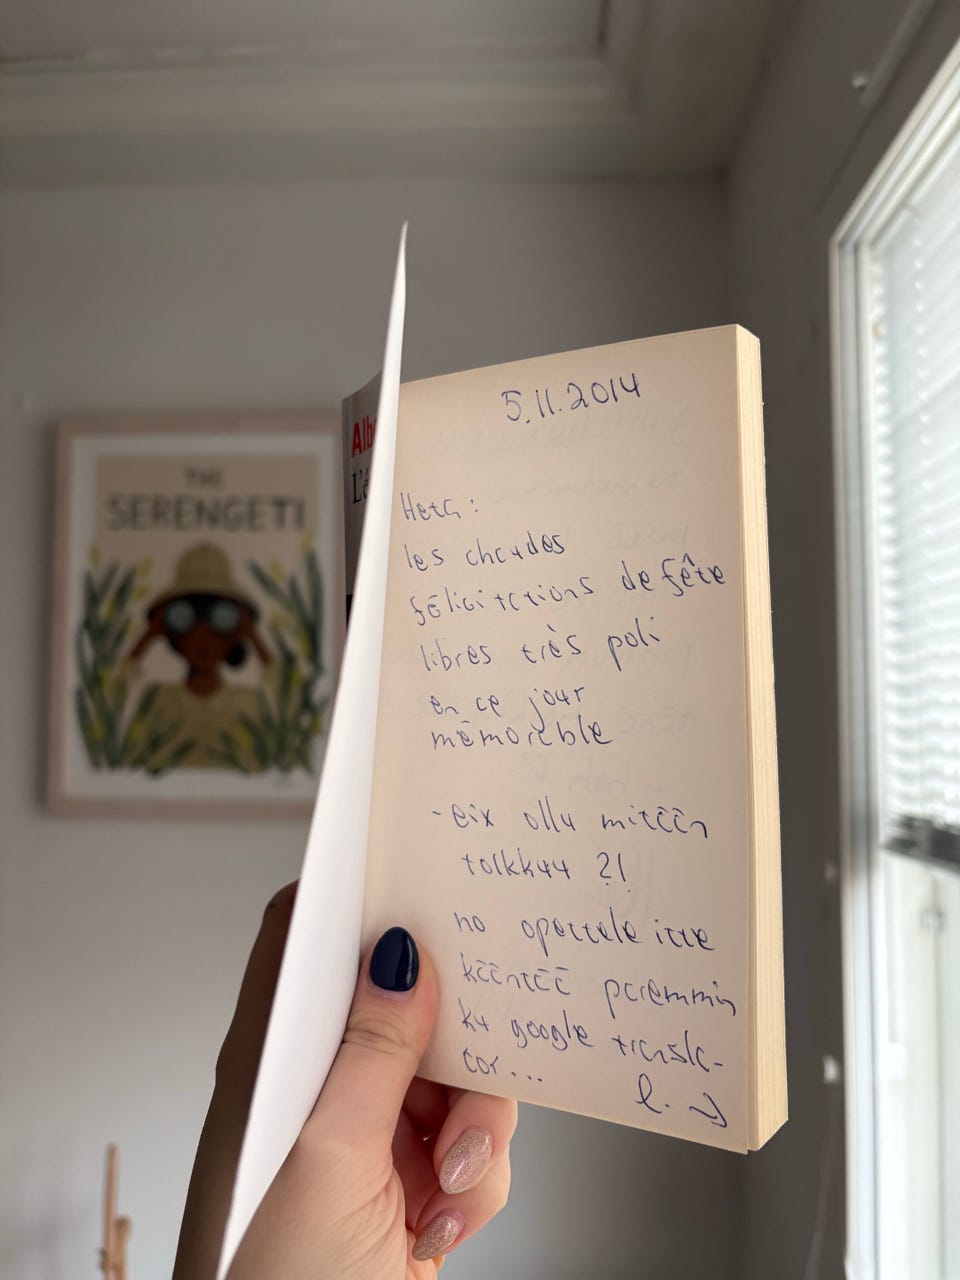 THE
SERENGETI
Alb
L'é
5.11.2014
Heta:
les chaudes
félicitations de fête
libres très poli
en ce jour
mémorable
- eix ollu mitään
tolkkuu ?!
no opettele itte
kääntää paremmin
ku google transla-
tor...
l. →